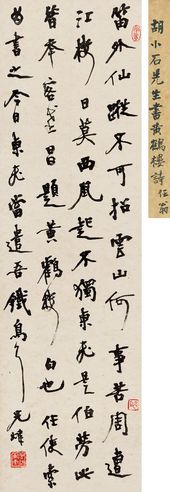 胡小石先生書黃鶴樓詩 任翁
笛外仙蹤不可招雲山何事苦周遭
江樓日莫西風起不獨東飛是伯勞此
昔年客武昌題黃鶴樓句也任俠索
為書之今日東飛當遣吾鐵鳥矣 光煒